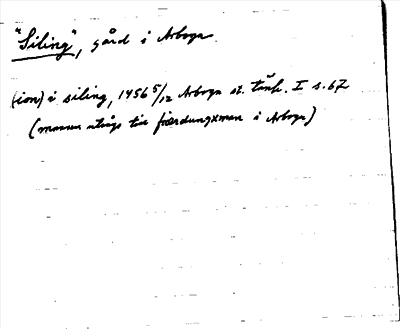 "Siling", gård i Arboga.
(ion) i siling, 1456 5/12 Arboga st. tänk. I s. 67
(mannen utsågs till fiærdungxman i Arboga)